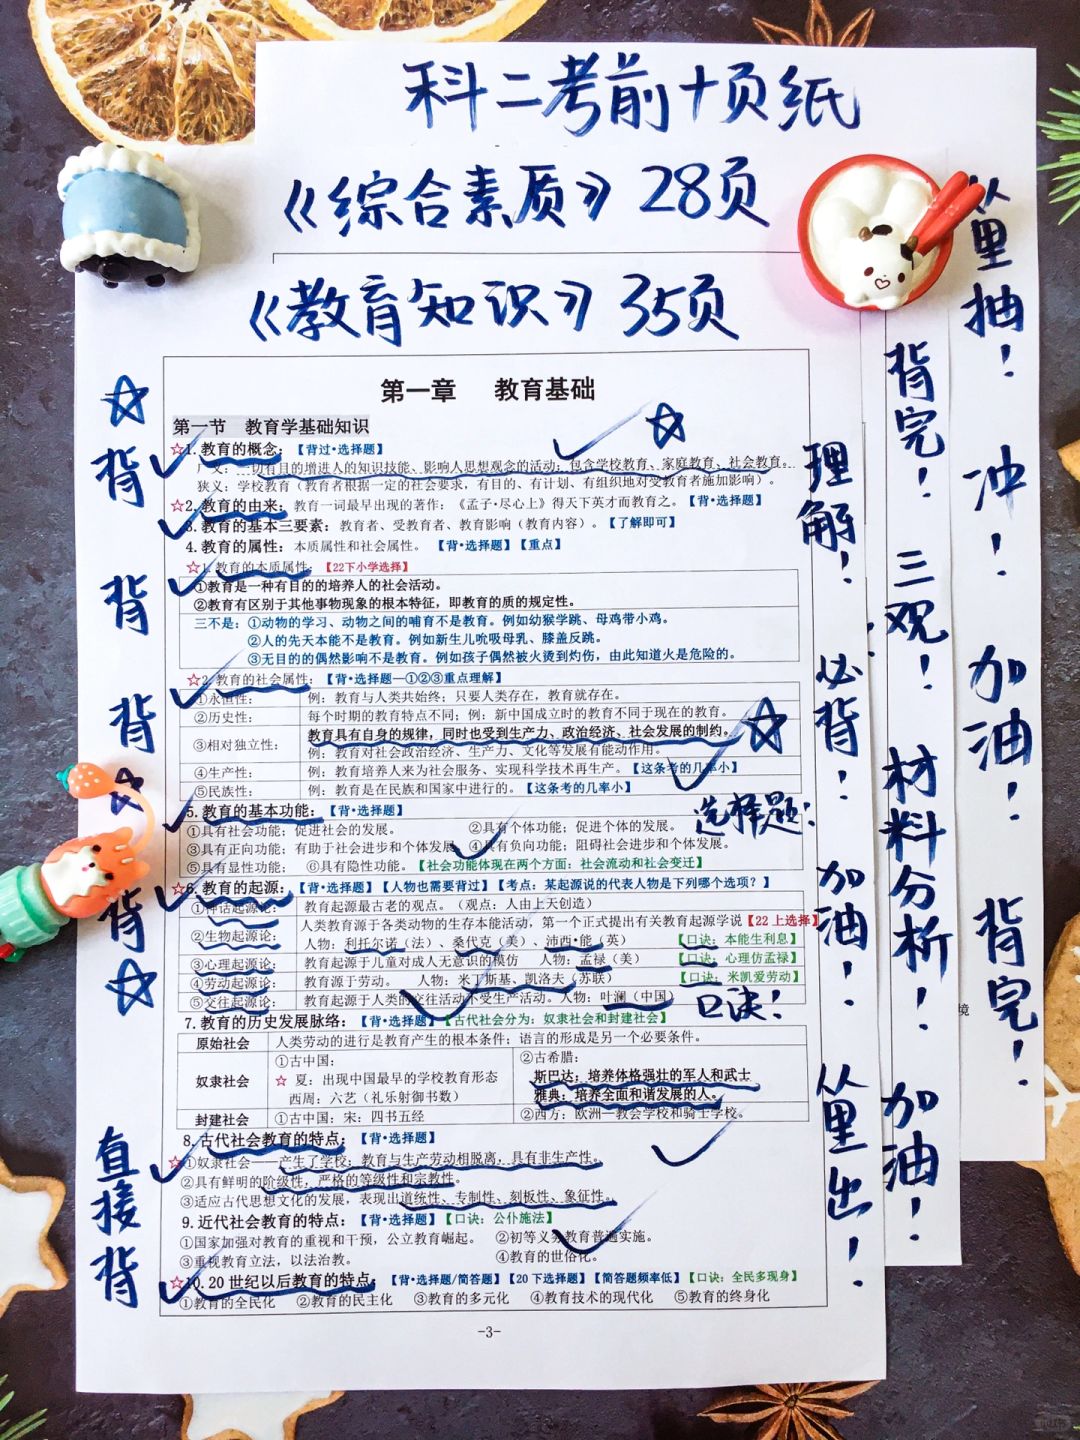 科二考前十页纸
《综合素质》28页
《教育知识》35页
第一章 教育基础
第一节 教育学基础知识
☆1. 教育的概念：【背过·选择题】
广义：一切有目的增进人的知识技能、影响人思想观念的活动；包含学校教育、家庭教育、社会教育。
狭义：学校教育（教育者根据一定的社会要求，有目的、有计划、有组织地对受教育者施加影响）。
☆2. 教育的由来：教育一词最早出现的著作：《孟子·尽心上》得天下英才而教育之。【背·选择题】
3. 教育的基本三要素：教育者、受教育者、教育影响（教育内容）。【了解即可】
4. 教育的属性：本质属性和社会属性。【背·选择题】【重点】
☆1. 教育的本质属性：【22下小学选择】
①教育是一种有目的的培养人的社会活动。
②教育有区别于其他事物现象的根本特征，即教育的质的规定性。
三不是：①动物的学习、动物之间的哺育不是教育。例如幼猴学跳、母鸡带小鸡。
②人的先天本能不是教育。例如新生儿吮吸母乳、膝盖反跳。
③无目的的偶然影响不是教育。例如孩子偶然被火烫到灼伤，由此知道火是危险的。
☆2. 教育的社会属性：【背·选择题—①②③重点理解】
①永恒性： 例：教育与人类共始终；只要人类存在，教育就存在。
②历史性： 每个时期的教育特点不同；例：新中国成立时的教育不同于现在的教育。
③相对独立性： 教育具有自身的规律，同时也受到生产力、政治经济、社会发展的制约。
例：教育对社会政治经济、生产力、文化等发展有能动作用。
④生产性： 例：教育培养人来为社会服务、实现科学技术再生产。【这条考的几率小】
⑤民族性： 例：教育是在民族和国家中进行的。【这条考的几率小】
5. 教育的基本功能：【背·选择题】
①具有社会功能；促进社会的发展。 ②具有个体功能；促进个体的发展。
③具有正向功能；有助于社会进步和个体发展 ④具有负向功能；阻碍社会进步和个体发展。
⑤具有显性功能； ⑥具有隐性功能。【社会功能体现在两个方面：社会流动和社会变迁】
☆6. 教育的起源：【背·选择题】【人物也需要背过】【考点：某起源说的代表人物是下列哪个选项？】
①神话起源论： 教育起源最古老的观点。（观点：人由上天创造）
②生物起源论： 人类教育源于各类动物的生存本能活动，第一个正式提出有关教育起源学说【22上选择】
人物：利托尔诺（法）、桑代克（美）、沛西·能（英） 【口诀：本能生利息】
③心理起源论： 教育起源于儿童对成人无意识的模仿 人物：孟禄（美） 【口诀：心理仿孟禄】
④劳动起源论： 教育源于劳动。 人物：米丁斯基、凯洛夫（苏联） 【口诀：米凯爱劳动】
⑤交往起源论： 教育起源于人类的交往活动不受生产活动。人物：叶澜（中国）
7. 教育的历史发展脉络：【背·选择题】【古代社会分为：奴隶社会和封建社会】
原始社会 人类劳动的进行是教育产生的根本条件；语言的形成是另一个必要条件。
奴隶社会 ①古中国： ②古希腊：
☆ 夏：出现中国最早的学校教育形态 斯巴达：培养体格强壮的军人和武士
西周：六艺（礼乐射御书数） 雅典：培养全面和谐发展的人。
封建社会 ①古中国：宋：四书五经 ②西方：欧洲—教会学校和骑士学校。
8. 古代社会教育的特点：【背·选择题】
☆①奴隶社会——产生了学校；教育与生产劳动相脱离，具有非生产性。
②具有鲜明的阶级性，严格的等级性和宗教性。
③适应古代思想文化的发展，表现出道统性、专制性、刻板性、象征性。
9. 近代社会教育的特点：【背·选择题】【口诀：公仆施法】
①国家加强对教育的重视和干预，公立教育崛起。 ②初等义务教育普遍实施。
③重视教育立法，以法治教。 ④教育的世俗化。
☆10. 20世纪以后教育的特点：【背·选择题/简答题】【20下选择题】【简答题频率低】【口诀：全民多现身】
①教育的全民化 ②教育的民主化 ③教育的多元化 ④教育技术的现代化 ⑤教育的终身化
-3-
背
背
背
背
直接背
选择题：
口诀！
理解！必背！加油！从里出！
背完！三观！材料分析！加油！
从里抽！冲！加油！背完！
境